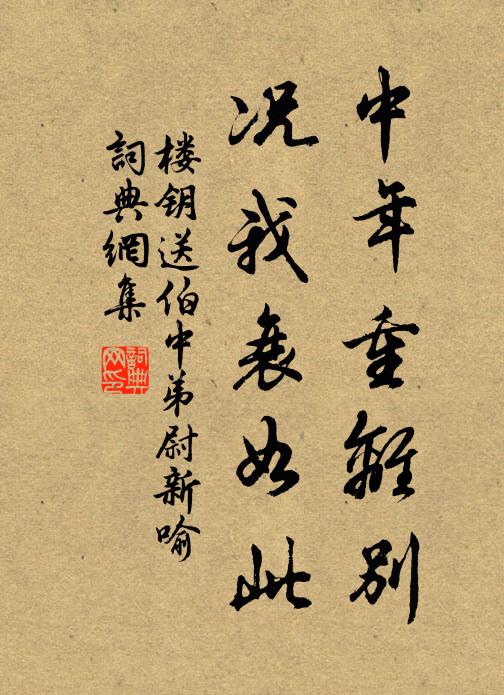 中年重離别
况我衰如此
楼钥送伯中弟尉新喻
詞典網集
詞典网印